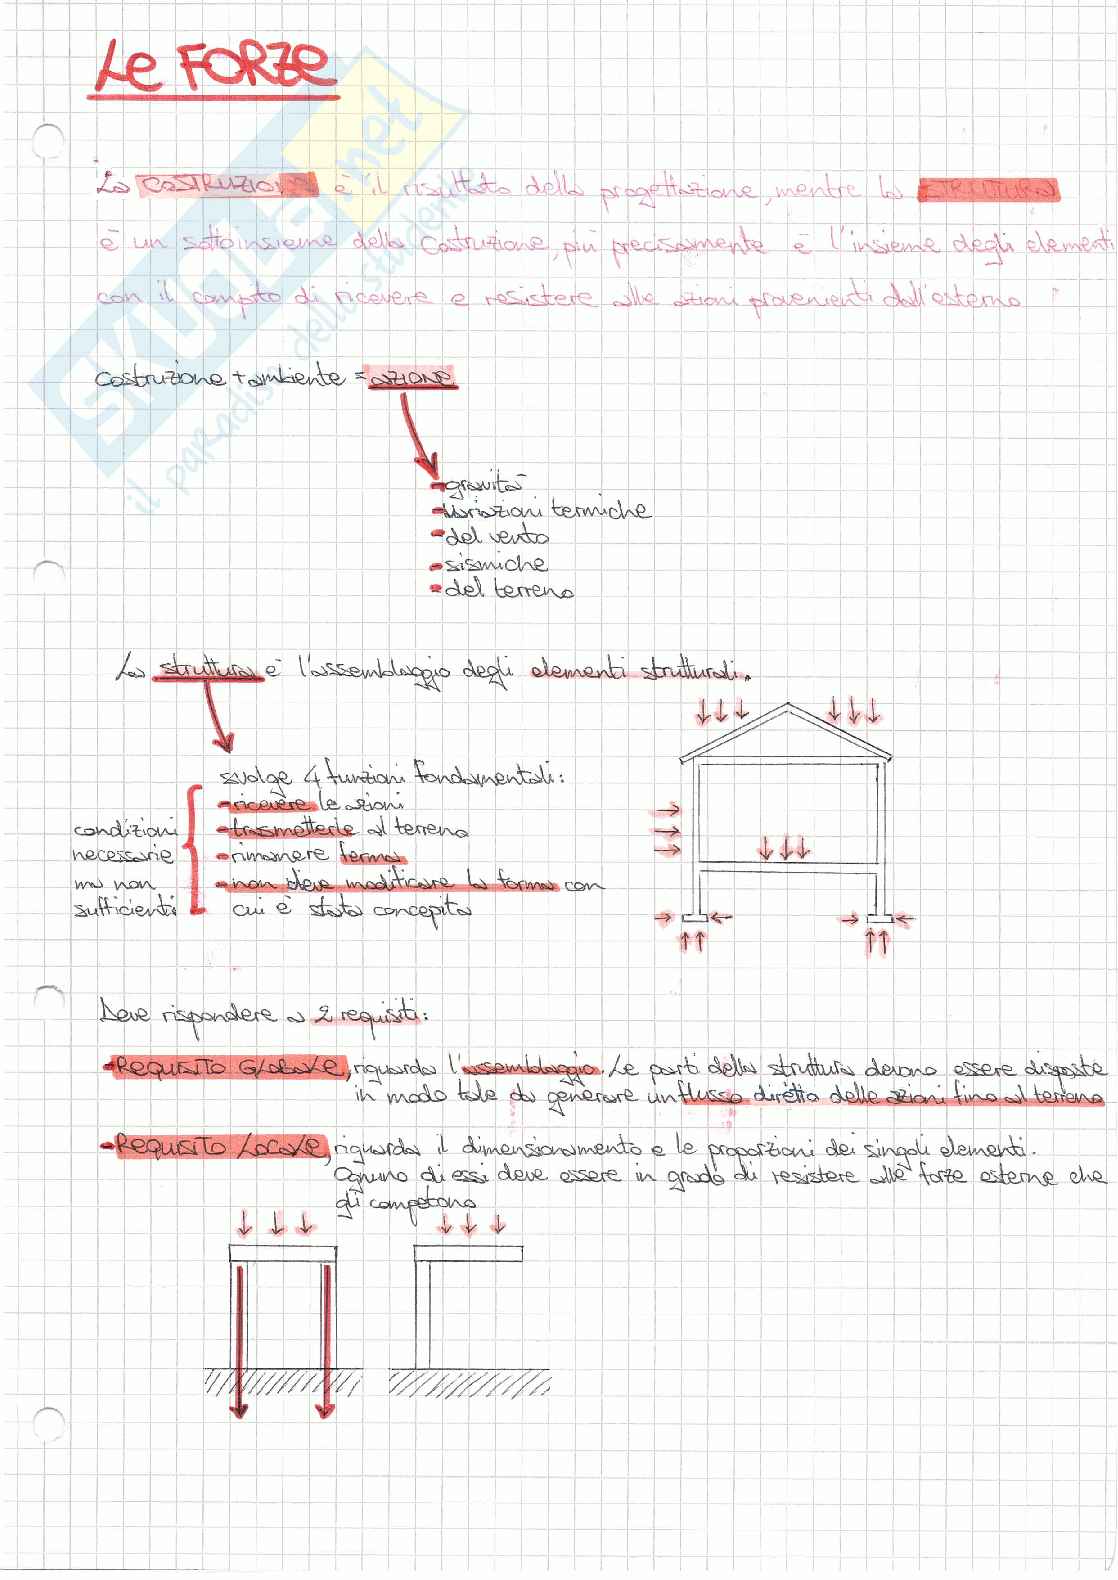 Le FORZE
La COSTRUZIONE è il risultato della progettazione, mentre la STRUTTURA
è un sottoinsieme della Costruzione, più precisamente è l'insieme degli elementi
con il compito di ricevere e resistere alle azioni provenienti dall'esterno
Costruzione + ambiente = AZIONE
- gravità
- variazioni termiche
- del vento
- sismiche
- del terreno
La struttura è l'assemblaggio degli elementi strutturali.
svolge 4 funzioni fondamentali:
- ricevere le azioni
- trasmetterle al terreno
- rimanere ferma
- non deve modificare la forma con
cui è stata concepita
condizioni
necessarie
ma non
sufficienti
Deve rispondere a 2 requisiti:
- REQUISITO GLOBALE, riguarda l'assemblaggio. Le parti della struttura devono essere disposte
in modo tale da generare un flusso diretto delle azioni fino al terreno
- REQUISITO LOCALE, riguarda il dimensionamento e le proporzioni dei singoli elementi.
Ognuno di essi deve essere in grado di resistere alle forze esterne che
gli competono
SKUOLA.net
il paradiso dello studente